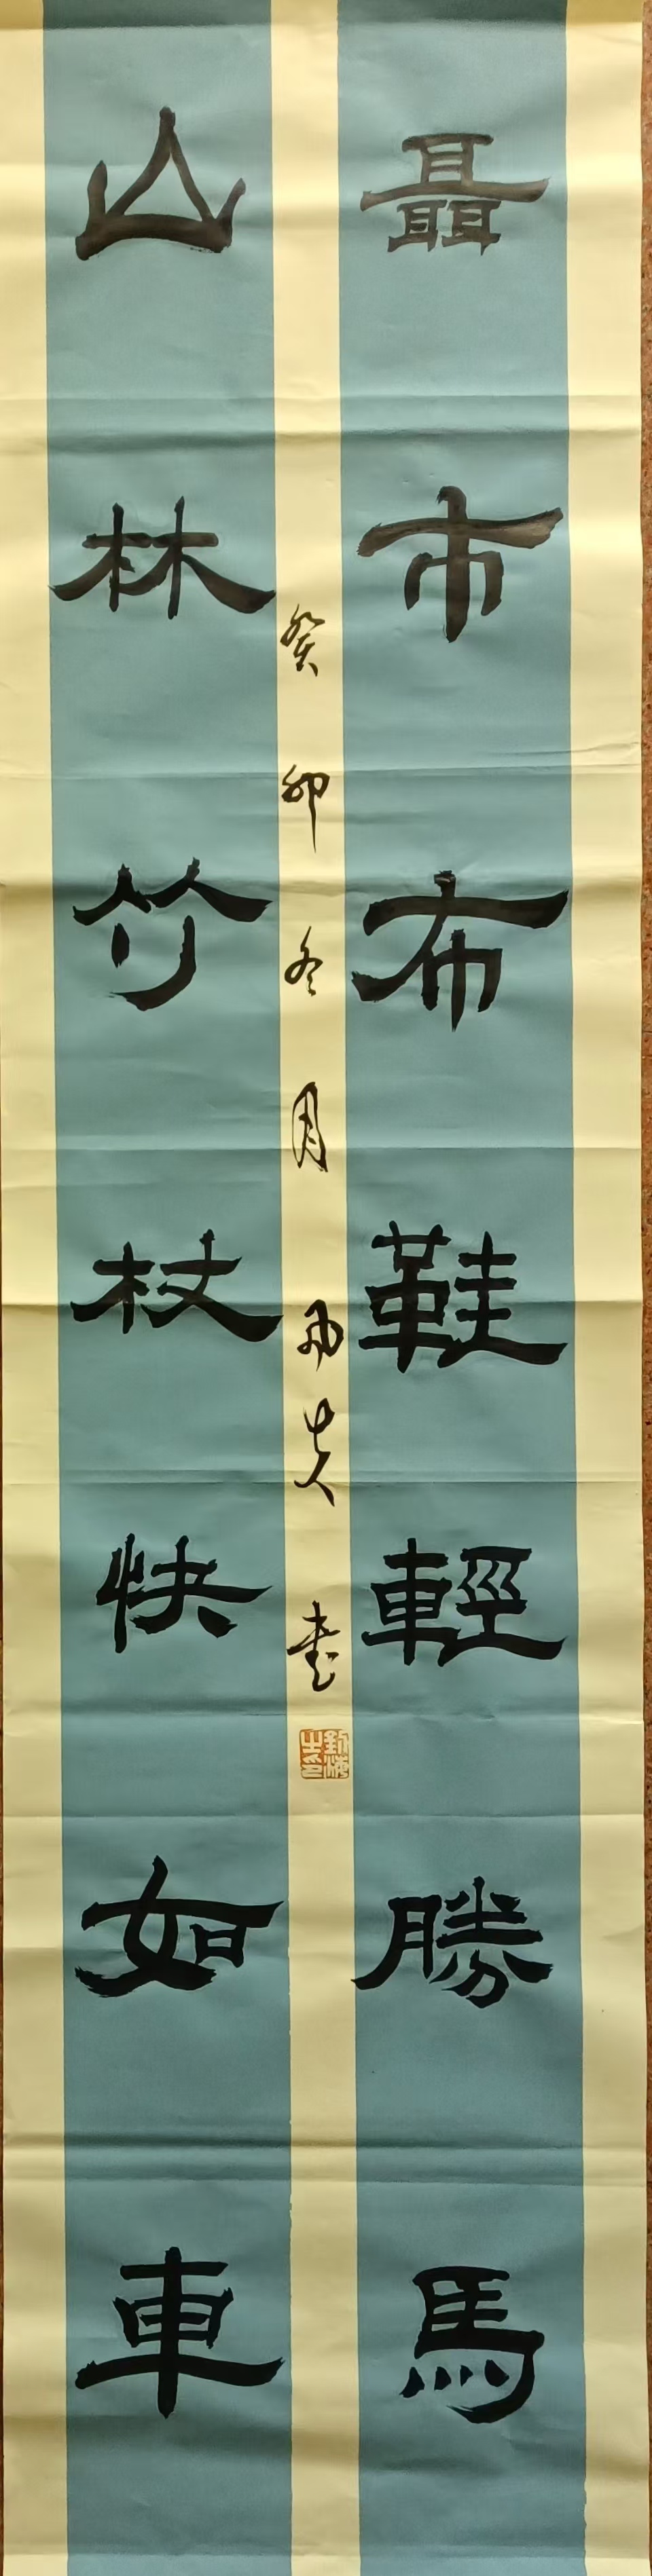 聶市布鞋輕勝馬
山林竹杖快如車
癸卯冬月 夫書